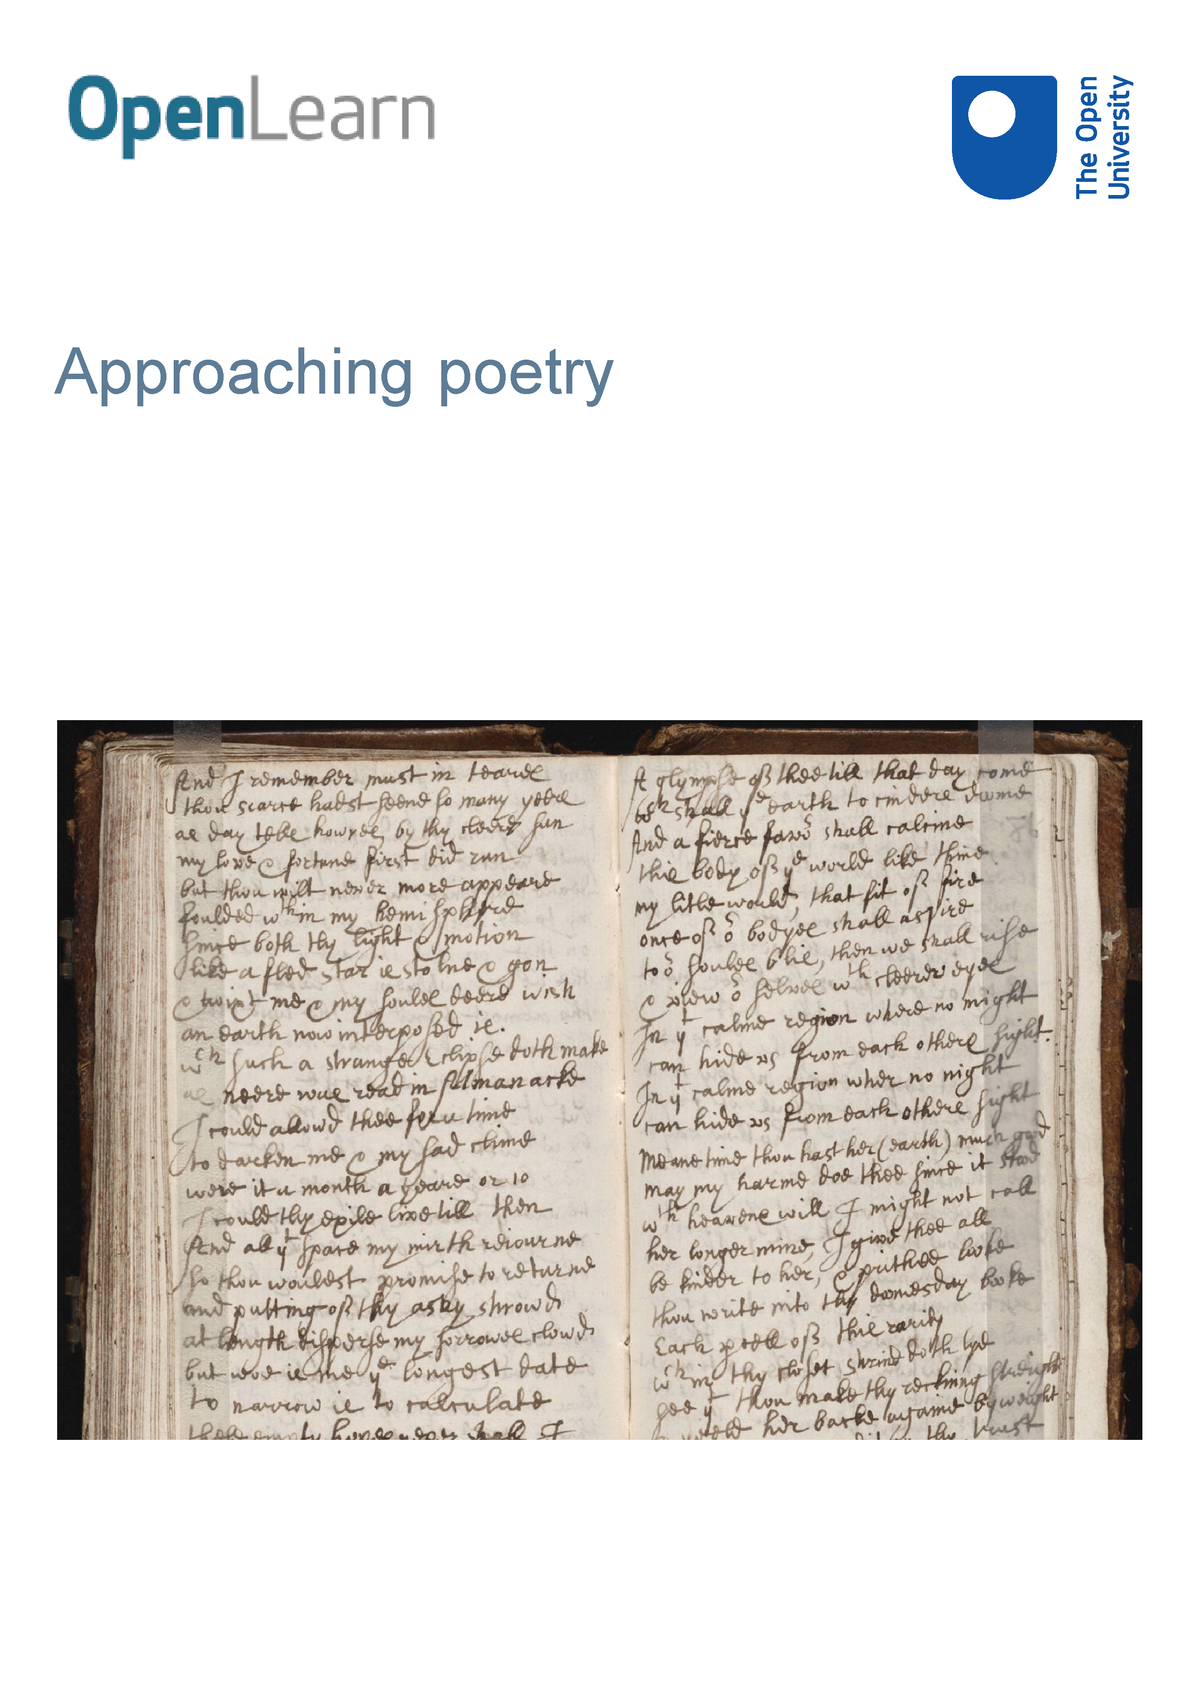 OpenLearn
The Open
University
Approaching poetry
And I remember must in teares
thou scarce hadst seene so many yeeres
as day telle howres, by thy cleere sun
my love & fortune first did run
but thou wilt never more appeare
foulded wth in my hemisphere
since both thy light & motion
like a fled star is & gon
& twixt me & my soules deere wish
an earth now interposed is.
wch such a strange Eclipse doth make
as neere was read in Almanacke
I could allowd thee for a time
to darken me & my sad clime
were it a month a yeare or 10
I could thy exile live till then
And all yt space my mirth adiourne
so thou wouldest promise to returne
and putting off thy ashy shrowd
at length disperse my sorrowes clowd
but woe is me ye longest date
to narrow is to calculate
these empty hopes never shall I
A glympse off thee till that day come
wch shall ye earth to cinders doome
And a fierce favor shall calcine
this body off ye world like thine
my litle world, that fit off fire
once off or bodyes shall aspire
to or soules blis, then we shall rise
& view or selves wth cleerer eyes
In yt calme region where no night
can hide us from each others sight.
In yt calme region wher no night
can hide us from each others sight
Meane time thou hast her (earth) much good
may my harme doe thee since it stood
wth heavens will I might not call
her longer mine, I give thee all
be kinder to her, & prithee looke
thou write into thy doomesday booke
Each peell off this rarity
wch in thy closet shrind doth lye
see yt thou make thy reckning streight
her backe againe by weight
trust